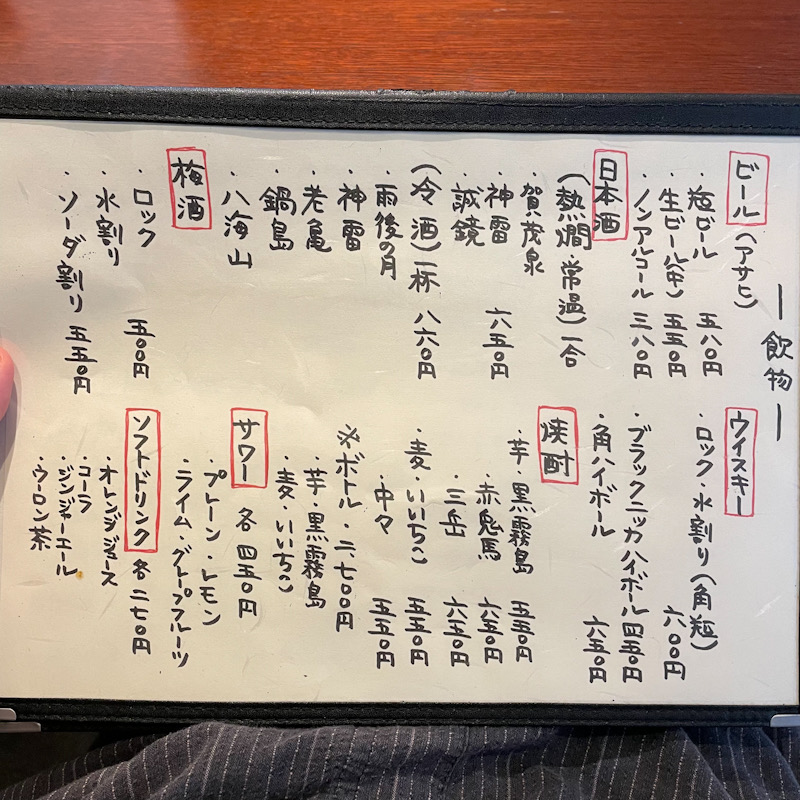 ―飲物―
ビール(アサヒ)
・瓶ビール 五八〇円
・生ビール(中) 五五〇円
・ノンアルコール 三八〇円
日本酒
(熱燗・常温)一合
・賀茂泉
・神雷 六五〇円
・誠鏡
(冷酒)一杯 八六〇円
・雨後の月
・神雷
・老亀
・鍋島
・八海山
梅酒
・ロック 五〇〇円
・水割り
・ソーダ割り 五五〇円
ウイスキー
・ロック・水割り(角瓶) 六〇〇円
・ブラックニッカハイボール 四五〇円
・角ハイボール 六五〇円
焼酎
・芋・黒霧島 五五〇円
・赤鬼馬 六五〇円
・三岳 六五〇円
・麦・いいちこ 五五〇円
・中々 五五〇円
※ボトル・二、七〇〇円
・芋・黒霧島
・麦・いいちこ
サワー 各 四五〇円
・プレーン・レモン
・ライム・グレープフルーツ
ソフトドリンク 各 二七〇円
・オレンジジュース
・コーラ
・ジンジャーエール
・ウーロン茶